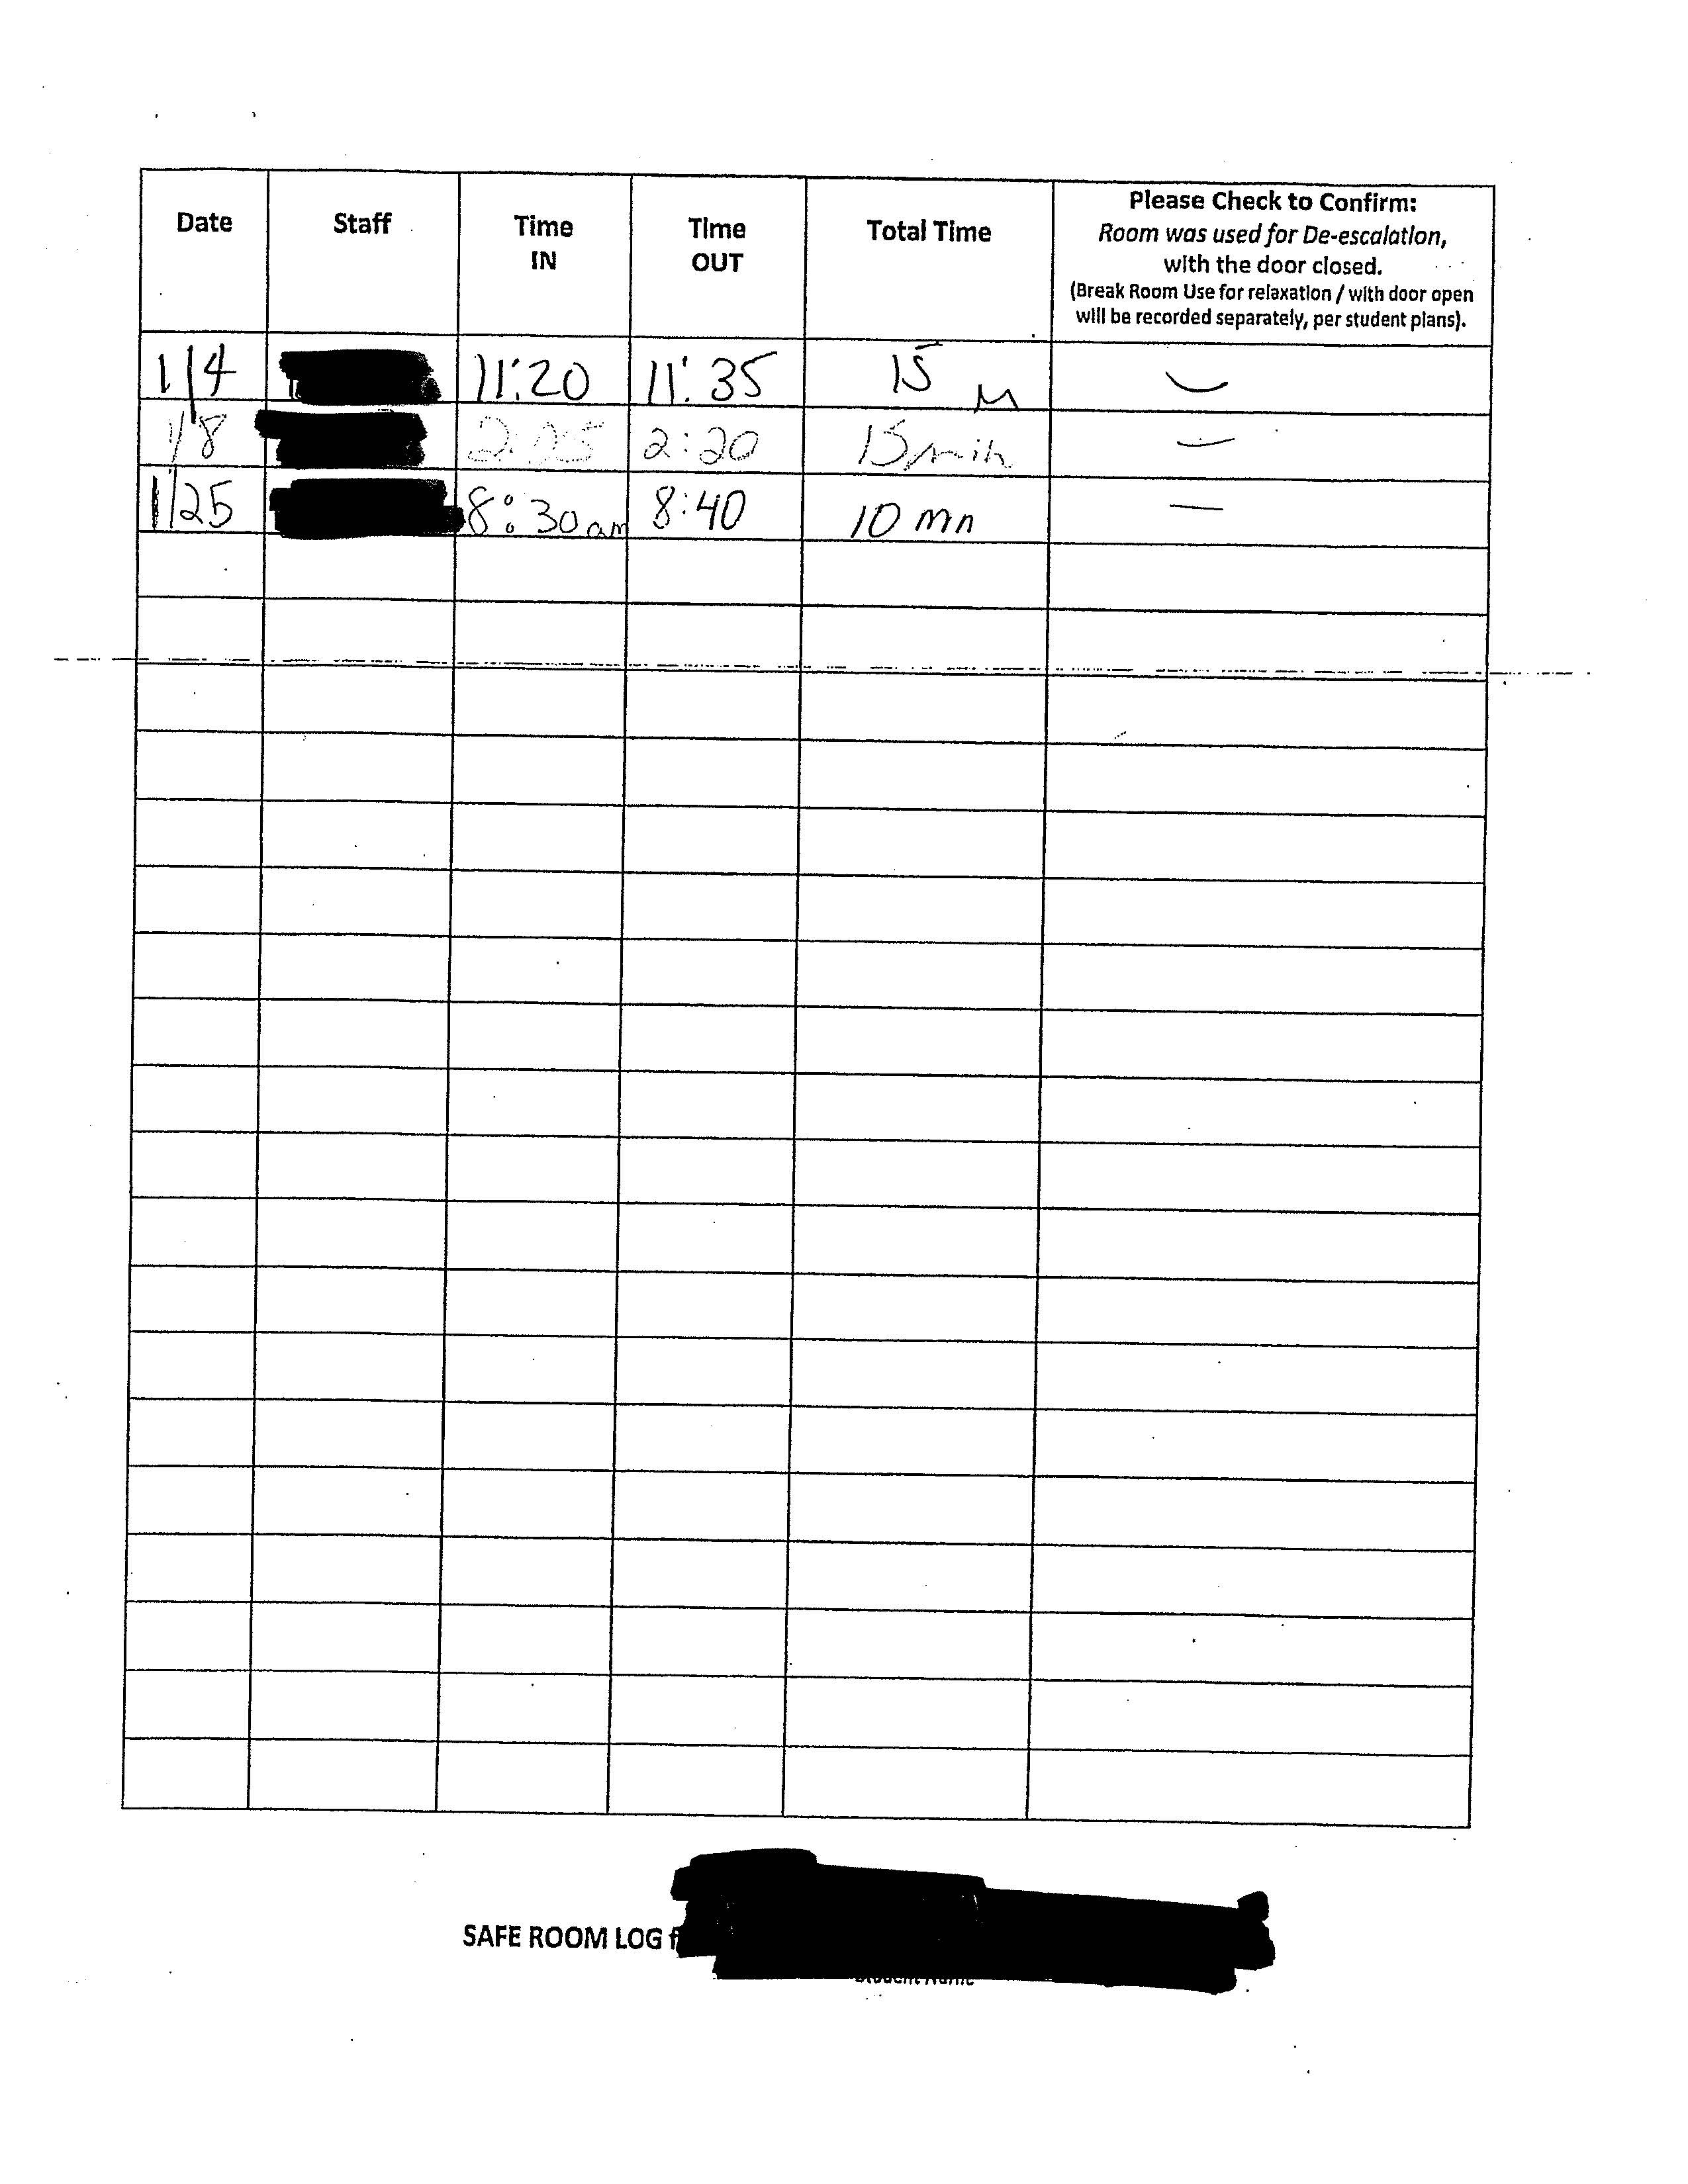 Date Staff Time IN Time OUT Total Time Please Check to Confirm:
Room was used for De-escalation,
with the door closed.
(Break Room Use for relaxation / with door open
will be recorded separately, per student plans).
1/4 11:20 11:35 15 M
1/8 2:20 15 min
1/25 8:30 am 8:40 10 mn
SAFE ROOM LOG
Student Name